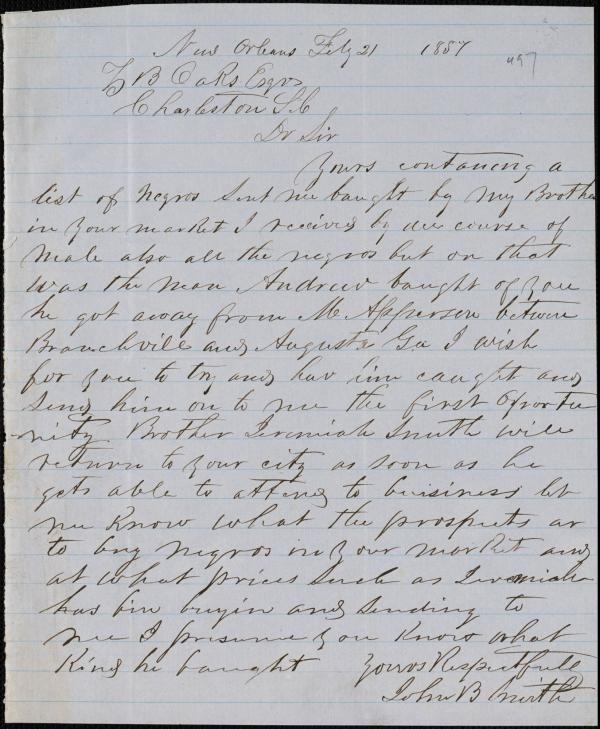 New Orleans Feby 21 1857
497
Z B Oaks Esqr
Charleston S.C
Dr Sir
Yours contancing a
list of negros Sent me baught by my Brother
in your market I received by due course of
male also all the negros but on that
was the man Andrew baught of you
he got away from M Apperson betwen
Branchvile and Augusta Ga I wish
for you to try and hav him caught and
Send him on to me the first oportu
nity. Brother Jeremiah Smith will
return to your city as soon as he
gets able to attend to buisiness let
me Know what the prospects ar
to buy negros in your market and
at what prices Such as Jeremiah
has bin buyin and Sending to
me I presume you Know what
Kind he baught Yours Respectfull
John B Smith